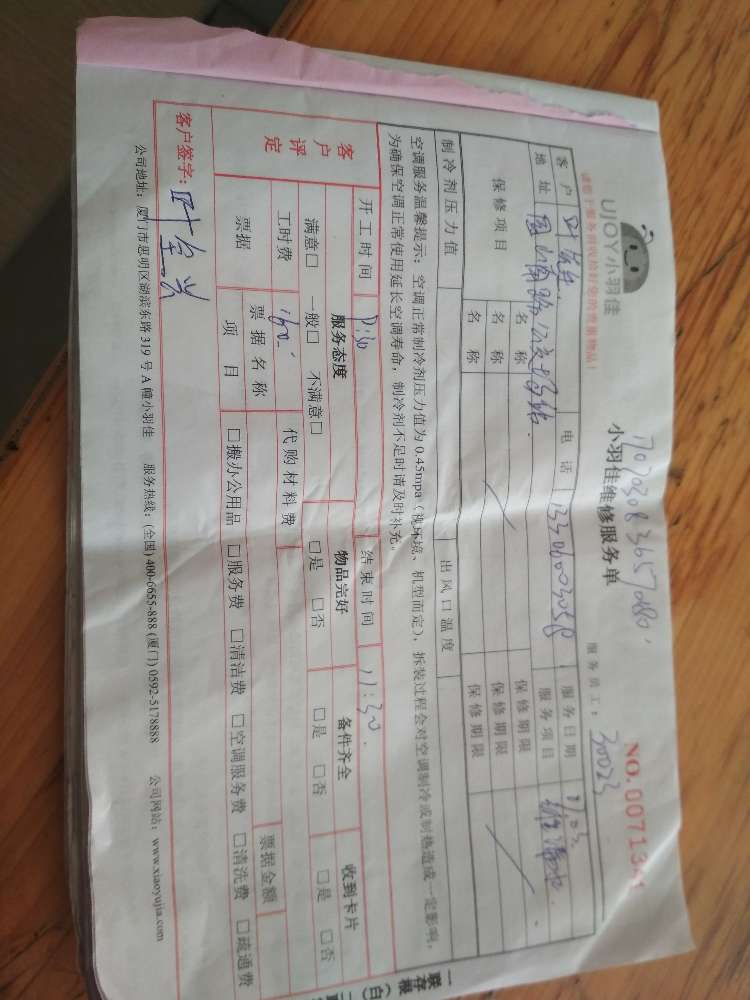 UJOY小羽佳
小羽佳维修服务单
服务员工：30023
NO.
请您于服务前收拾好您的贵重物品！
客户 电话 13306003058 服务日期
地址 服务项目
保修项目 名称 保修期限
名称 保修期限
名称 保修期限
制冷剂压力值 出风口温度
空调服务温馨提示：空调正常制冷剂压力值为0.45mpa（视环境、机型而定），拆装过程会对空调制冷或制热造成一定影响，
为确保空调正常使用延长空调寿命，制冷剂不足时请及时补充。
开工时间 结束时间 11:30.
客户评定 服务态度 物品完好 备件齐全 收到卡片
满意□ 一般□ 不满意□ □是 □否 □是 □否 □是 □否
工时费 代购材料费
票据 票据名称 票据金额
项目 □搬办公用品 □服务费 □清洁费 □空调服务费 □清洗费 □疏通费
客户签字：
公司地址：厦门市思明区湖滨东路319号A幢小羽佳 服务热线：(全国)400-6655-888 (厦门)0592-5178888 公司网站：www.xiaoyujia.com
一联存根（白）二联